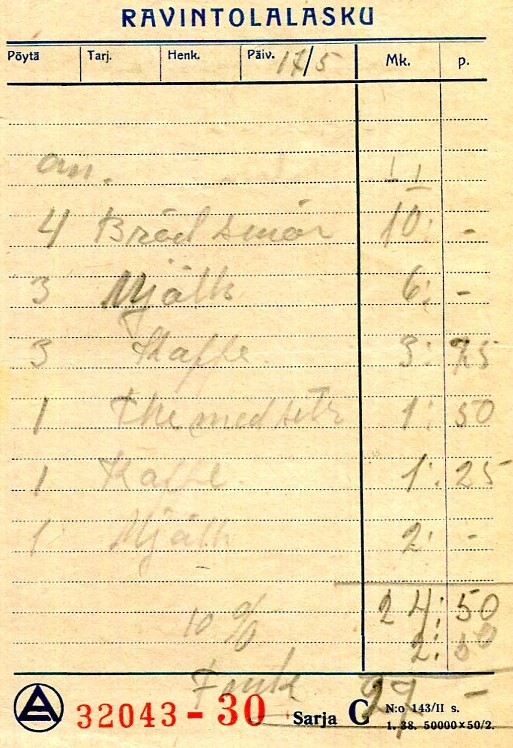 RAVINTOLALASKU
Pöytä Tarj. Henk. Päiv. 17/5 Mk. p.
an.
4 Bröd smör 10: -
3 Mjölk 6: -
3 Kaffe 3: 75
1 The med 1: 50
1 Kaffe 1: 25
1 Mjölk 2: -
24: 50
10 % 2: 50
27 -
A 32043-30 Sarja G N:o 143/II s.
1. 38. 50000x50/2.